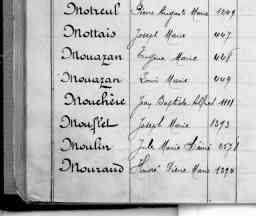 Motreul Pierre Auguste Marie 1249
Mottais Joseph Marie 447
Mouazan Eugène Marie 448
Mouazan Louis Marie 449
Mouchère Jean Baptiste Alfred 1111
Mouflet Joseph Marie 1293
Moulin Jules Marie Aimé 257
Mouraud Honoré Pierre Marie 1294